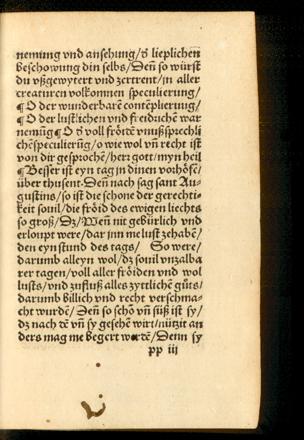 nemung vnd ansehung/ď lieplichen
beschowung din selbs/Deñ so würst
du vßgewytert vnd zertrent/in aller
creaturen volkomnen speculierung/
¶O der wunderbarē contēplierung/
¶O der lustlichen vnd freidrichē war
nemūg ¶O ď voll fröidē vnußsprechli
chēspeculierūg/o wie wol vñ recht ist
von dir gesprochē/herr gott/myn heil
¶Besser ist eyn tag in dinen vorhöfē/
über thusent. Deñ nach sag sant Au-
gustins/so ist die schone der gerechti-
keit souil/die fröid des ewigen liechts
so groß/Dz/Weñ nit gebürlich vnd
erloupt were/dar inn me lust zehabē/
den eyn stund des tags/ So were/
darumb alleyn wol/dz souil vnzalba
rer tagen/voll aller fröiden vnd wol
lusts/vnd zufluß alles zyttlichē gūts/
darumb billich vnd recht verschma-
cht wurdē/Deñ so schō vñ süß ist sy/
dz nach dē vñ sy gesehē wirt/nützit an
ders mag me begert werdē/Denn sy
pp iij